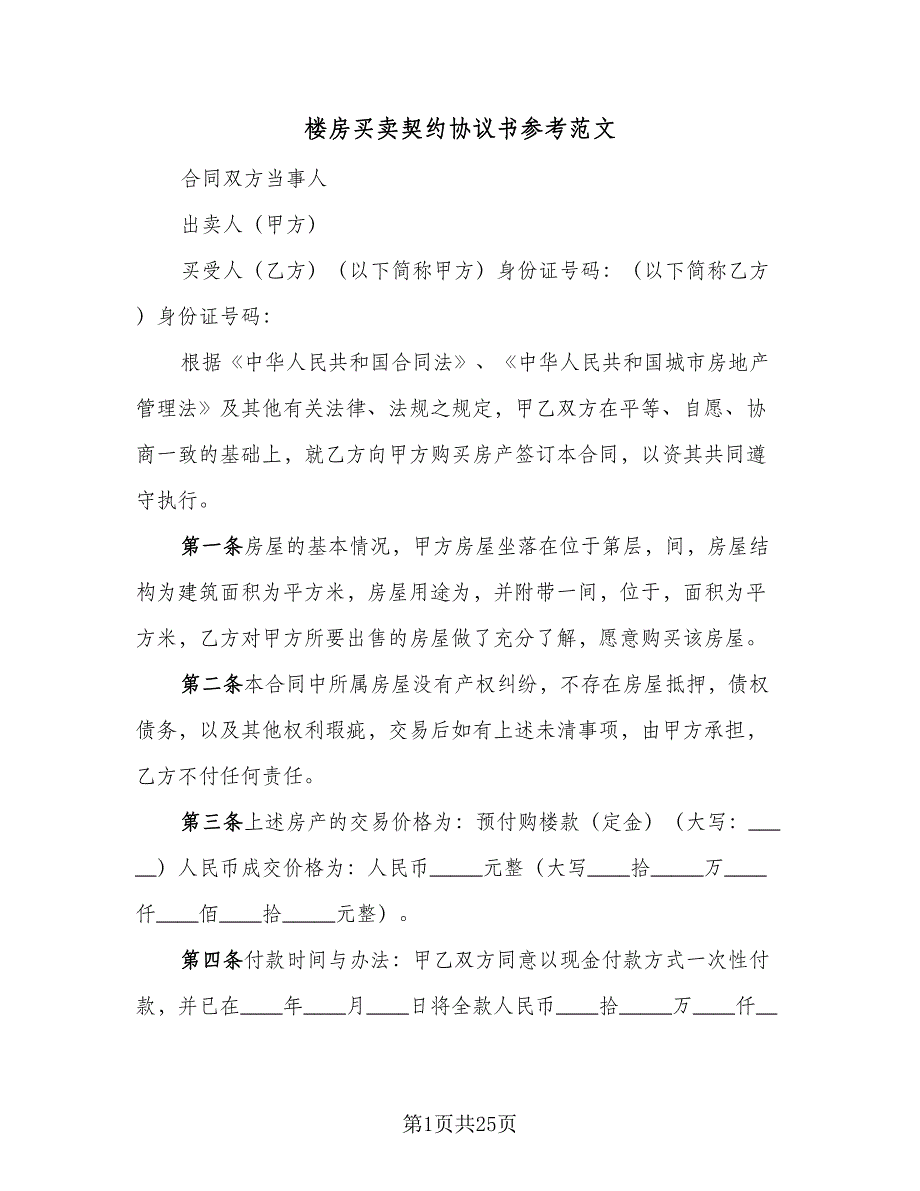 楼房买卖契约协议书参考范文
合同双方当事人
出卖人（甲方）
买受人（乙方）（以下简称甲方）身份证号码：（以下简称乙方
）身份证号码：
根据《中华人民共和国合同法》、《中华人民共和国城市房地产
管理法》及其他有关法律、法规之规定，甲乙双方在平等、自愿、协
商一致的基础上，就乙方向甲方购买房产签订本合同，以资其共同遵
守执行。
第一条房屋的基本情况，甲方房屋坐落在位于第层，间，房屋结
构为建筑面积为平方米，房屋用途为，并附带一间，位于，面积为平
方米，乙方对甲方所要出售的房屋做了充分了解，愿意购买该房屋。
第二条本合同中所属房屋没有产权纠纷，不存在房屋抵押，债权
债务，以及其他权利瑕疵，交易后如有上述未清事项，由甲方承担，
乙方不付任何责任。
第三条上述房产的交易价格为：预付购楼款（定金）（大写：___
__）人民币成交价格为：人民币_____元整（大写____拾_____万____
仟____佰____拾_____元整）。
第四条付款时间与办法：甲乙双方同意以现金付款方式一次性付
款，并已在____年____月____日将全款人民币____拾_____万____仟__
第1页共25页